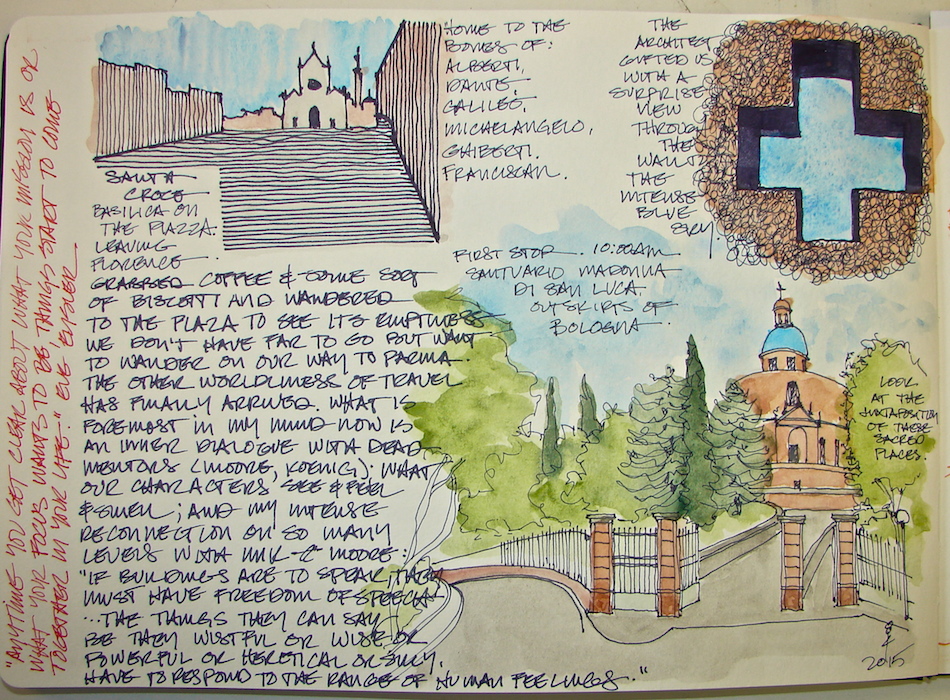 "ANYTIME YOU GET CLEAR ABOUT WHAT YOUR MISSION IS OR
WHAT YOUR FOCUS WANTS TO BE THINGS START TO COME
TOGETHER IN YOUR LIFE." EVE EPSLER
SANTA
CROCE
BASILICA ON
THE PIAZZA.
LEAVING
FLORENCE.
GRABBED COFFEE & SOME SORT
OF BISCOTTI AND WANDERED
TO THE PLAZA TO SEE ITS EMPTINESS
WE DON'T HAVE FAR TO GO BUT WANT
TO WANDER ON OUR WAY TO PARMA.
THE OTHER WORLDLINESS OF TRAVEL
HAS FINALLY ARRIVED. WHAT IS
FOREMOST IN MY MIND NOW IS
AN INNER DIALOGUE WITH DEAD
MENTORS (MOORE, KOENIG): WHAT
OUR CHARACTERS SEE & FEEL
& SMELL; AND MY INTENSE
RECONNECTION ON SO MANY
LEVELS WITH MOORE:
"IF BUILDINGS ARE TO SPEAK, THEY
MUST HAVE FREEDOM OF SPEECH
...THE THINGS THEY CAN SAY
BE THEY WISTFUL OR WISE OR
POWERFUL OR HERETICAL OR SILLY.
HAVE TO RESPOND TO THE RANGE OF HUMAN FEELINGS."
HOME TO THE
BONES OF:
ALBERTI,
DANTE,
GALILEO,
MICHELANGELO,
GHIBERTI.
FRANCISCAN.
THE
ARCHITECT
GIFTED US
WITH A
SURPRISE
VIEW
THROUGH
THE
WALL TO
THE
INTENSE
BLUE
SKY.
FIRST STOP. 10:00AM
SANTUARIO MADONNA
DI SAN LUCA.
OUTSKIRTS OF
BOLOGNA.
LOOK
AT THE
JUXTAPOSITION
OF THESE
SACRED
PLACES.
2015